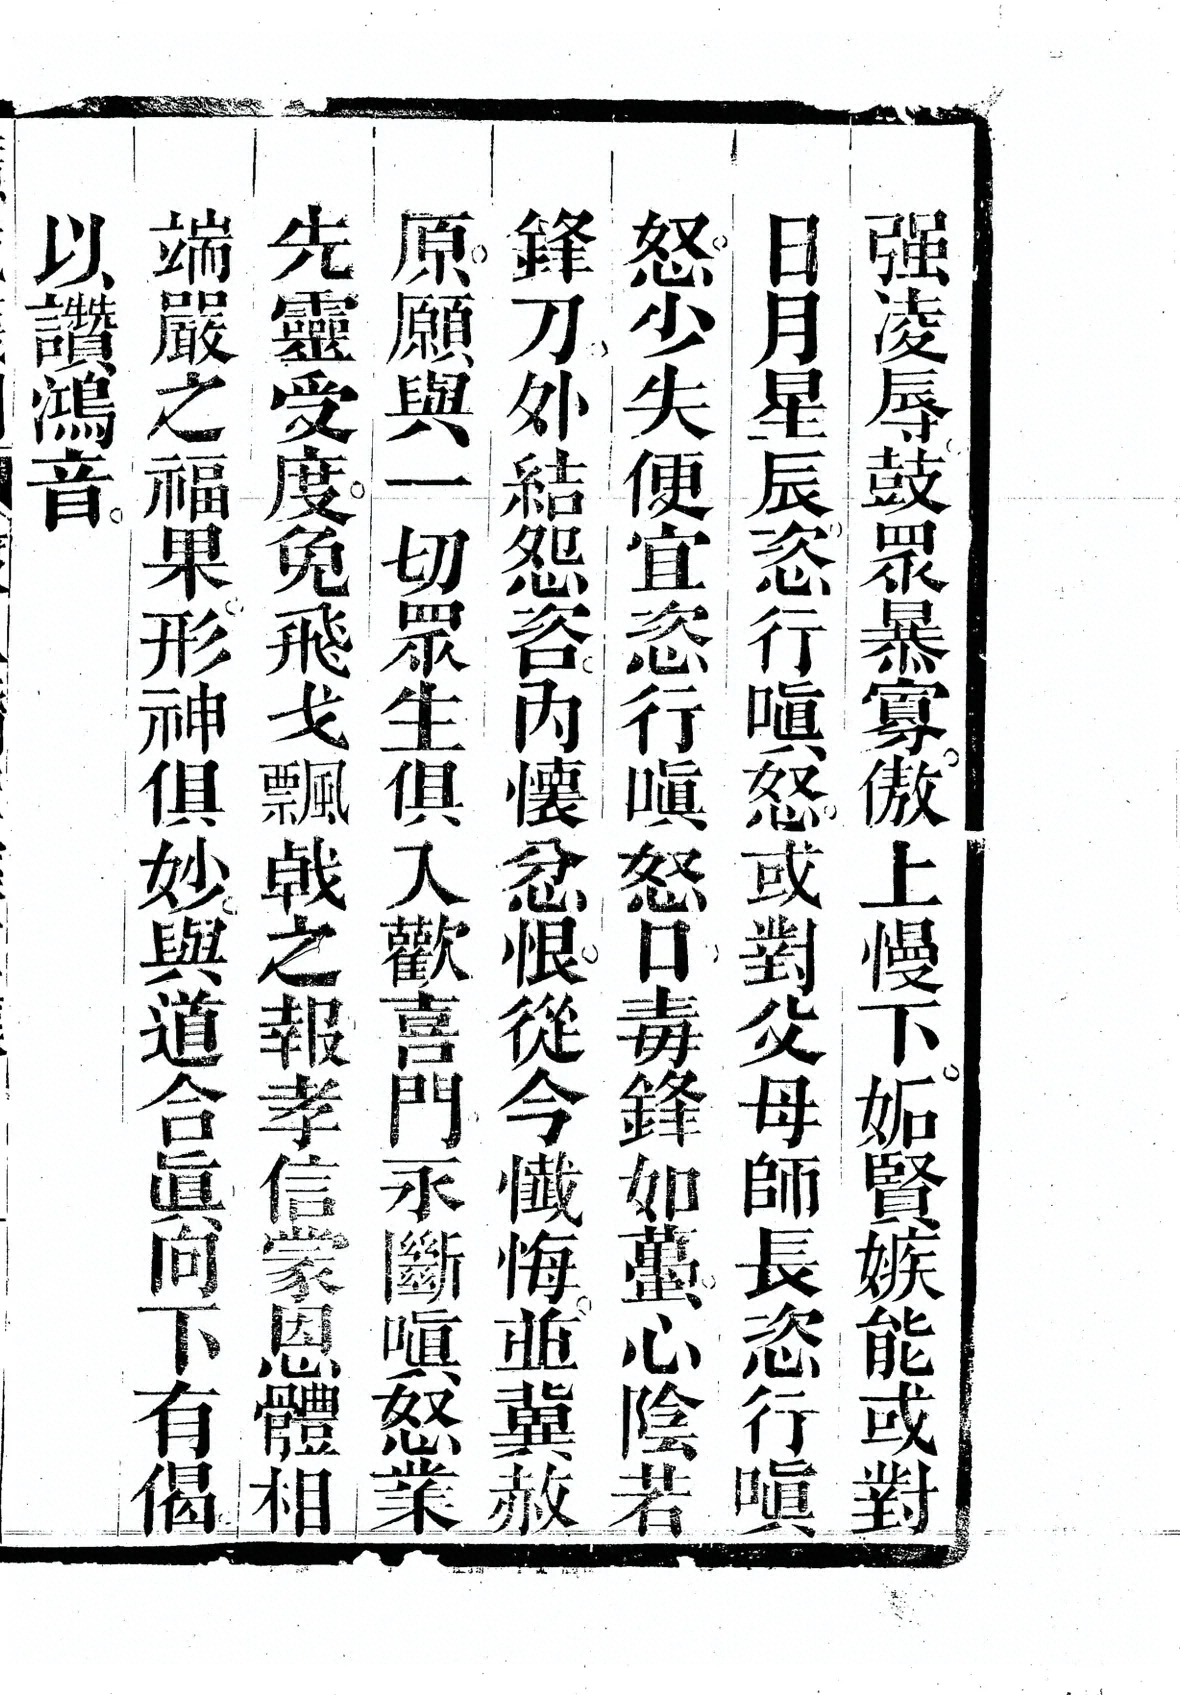 强凌辱鼓眾暴寡傲上慢下妬賢嫉能或對
日月星辰恣行嗔怒或對父母師長恣行嗔
怒少失便宜恣行嗔怒口毒鋒如蠆心陰若
鋒刀外結怨咨內懷忿恨從今懺悔並冀赦
原願與一切眾生俱入歡喜門永斷嗔怒業
先靈受度免飛戈飄戟之報孝信蒙恩體相
端嚴之福果形神俱妙與道合眞向下有偈
以讚鴻音